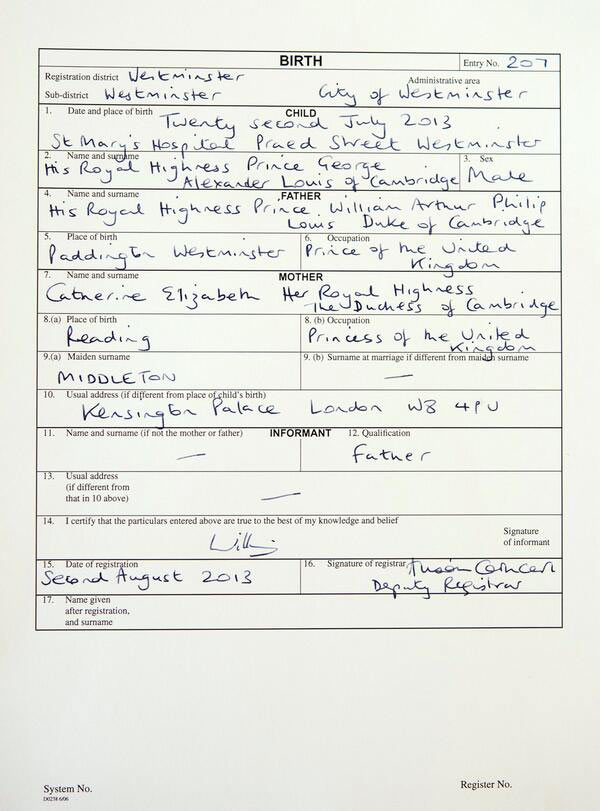 BIRTH
Entry No. 207
Registration district Westminster
Administrative area
Sub-district Westminster City of Westminster
1. Date and place of birth CHILD
Twenty second July 2013
St Mary's Hospital Praed Street Westminster
2. Name and surname
His Royal Highness Prince George
Alexander Louis of Cambridge
3. Sex
Male
4. Name and surname FATHER
His Royal Highness Prince William Arthur Philip
Louis Duke of Cambridge
5. Place of birth
Paddington Westminster
6. Occupation
Prince of the United
Kingdom
7. Name and surname MOTHER
Catherine Elizabeth Her Royal Highness
The Duchess of Cambridge
8.(a) Place of birth
Reading
8. (b) Occupation
Princess of the United
Kingdom
9.(a) Maiden surname
MIDDLETON
9. (b) Surname at marriage if different from maiden surname
—
10. Usual address (if different from place of child's birth)
Kensington Palace London W8 4PU
11. Name and surname (if not the mother or father) INFORMANT
—
12. Qualification
Father
13. Usual address
(if different from
that in 10 above)
—
14. I certify that the particulars entered above are true to the best of my knowledge and belief
Signature
of informant
15. Date of registration
Second August 2013
16. Signature of registrar
Deputy Registrar
17. Name given
after registration,
and surname
System No.
D0238 6/06
Register No.